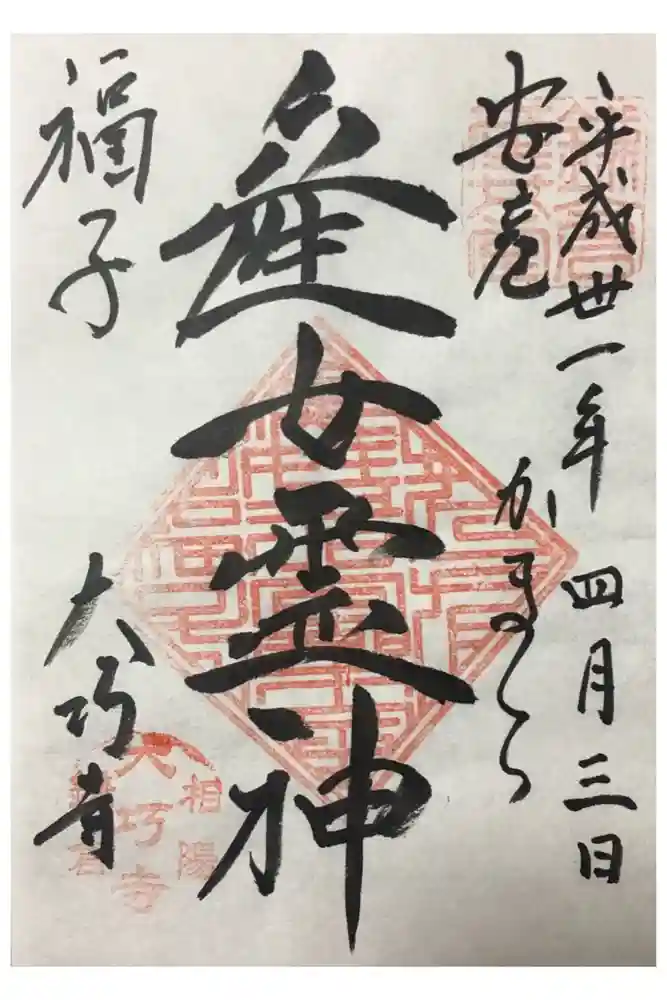 平成卅一年四月三日
安産
かまくら
産女霊神
福子
大巧寺
相陽
大巧寺
鎌倉